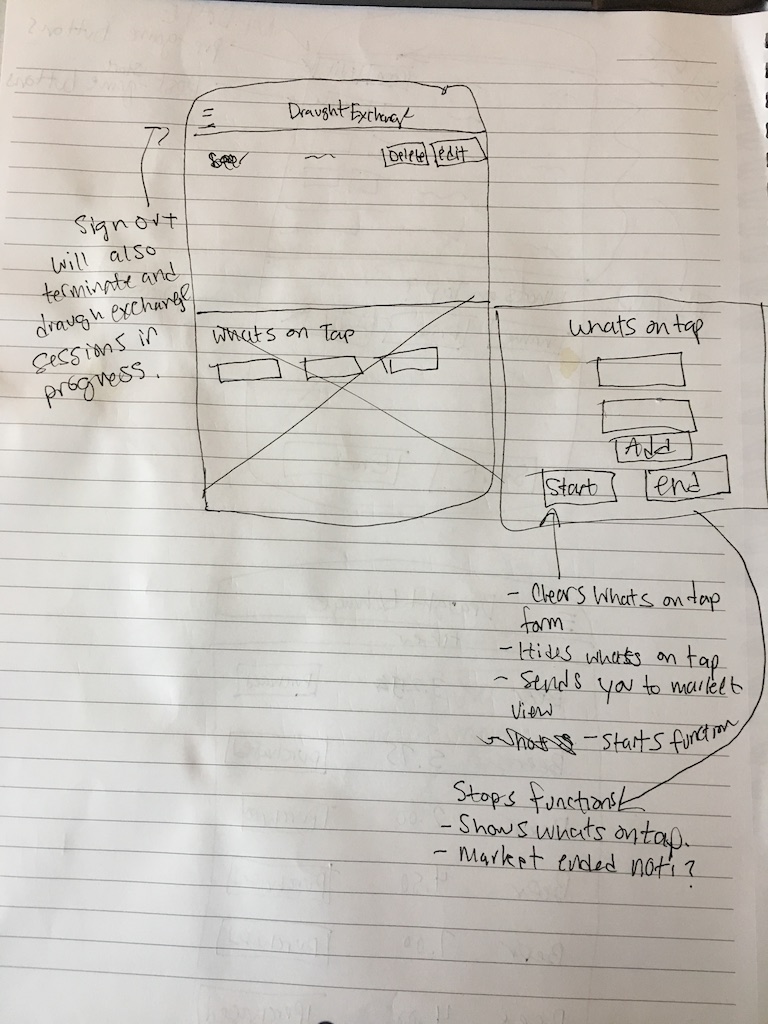 Draught Exchange
Delete edit
Sign out
will also
terminate and
draugh exchange
sessions in
progress.
Whats on Tap
Whats on tap
Add
Start end
- Clears Whats on tap
form
- Hides whats on tap
- Sends you to market
view
- Starts function
Stops functions
- Shows whats on tap.
- Market ended noti?